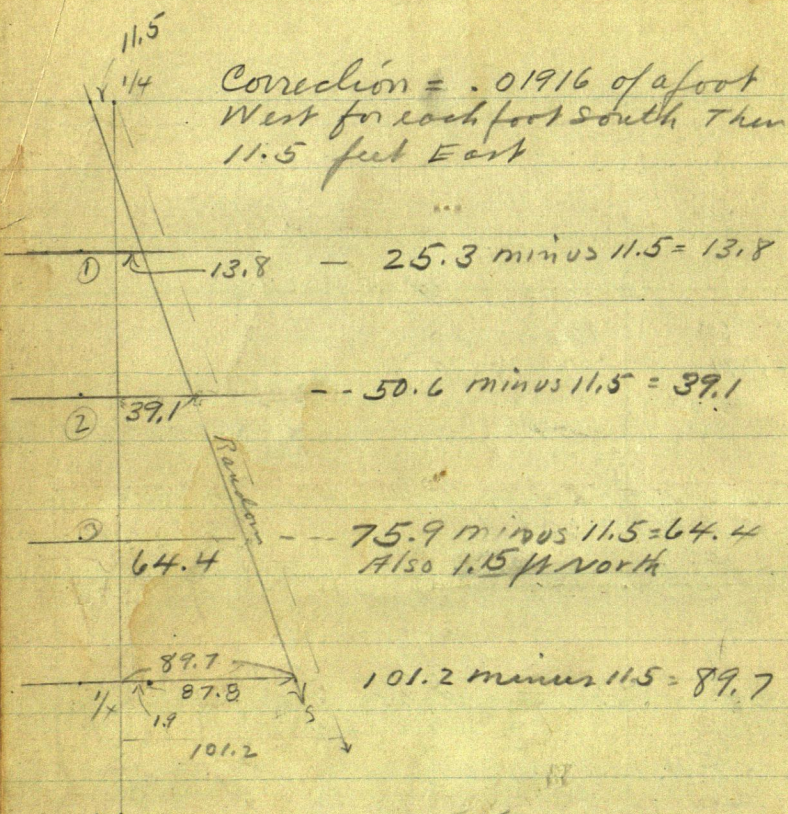 11.5
1/4
Correction = .01916 of a foot
West for each foot South Then
11.5 feet East
① 13.8 — 25.3 minus 11.5 = 13.8
② 39.1 -- 50.6 minus 11.5 = 39.1
Random
3 --- 75.9 minus 11.5 = 64.4
64.4 Also 1.15 ft North
89.7
87.8 101.2 minus 11.5 = 89.7
1.9
101.2